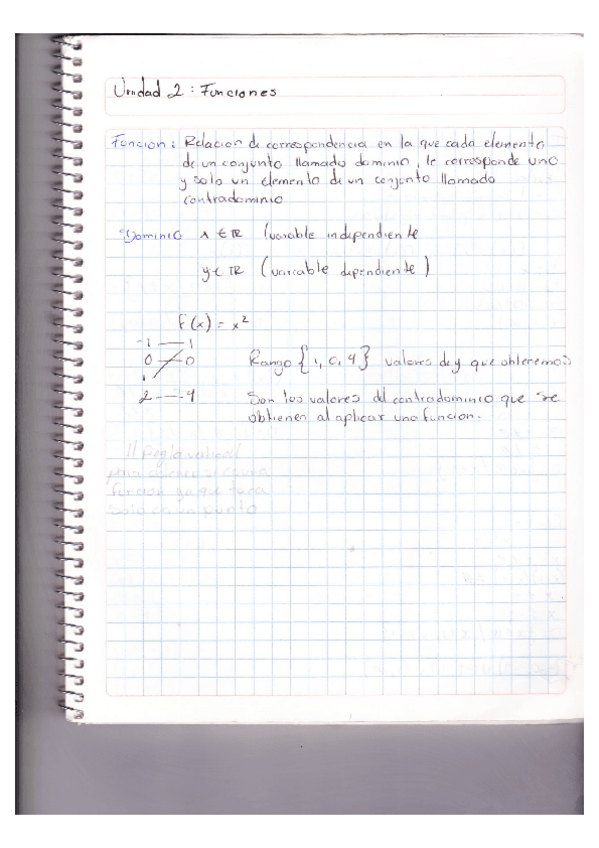 Unidad 2 : Funciones
Funcion : Relacion de correspondencia en la que cada elemento
de un conjunto llamado dominio, le corresponde uno
y solo un elemento de un conjunto llamado
contradominio
Dominio x ∈ ℝ (variable independiente
y ∈ ℝ (variable dependiente)
F(x) = x²
-1 — 1
0 — 0 Rango {1, 0, 4} valores de y que obtenemos
1
2 — 4 Son los valores del contradominio que se
obtienen al aplicar una funcion.
// Regla vertical
para
funcion ya que toca
solo en un punto